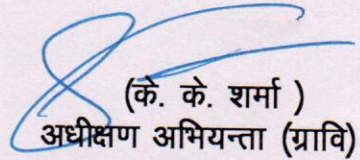 (के. के. शर्मा )
अधीक्षण अभियन्ता (ग्रावि)